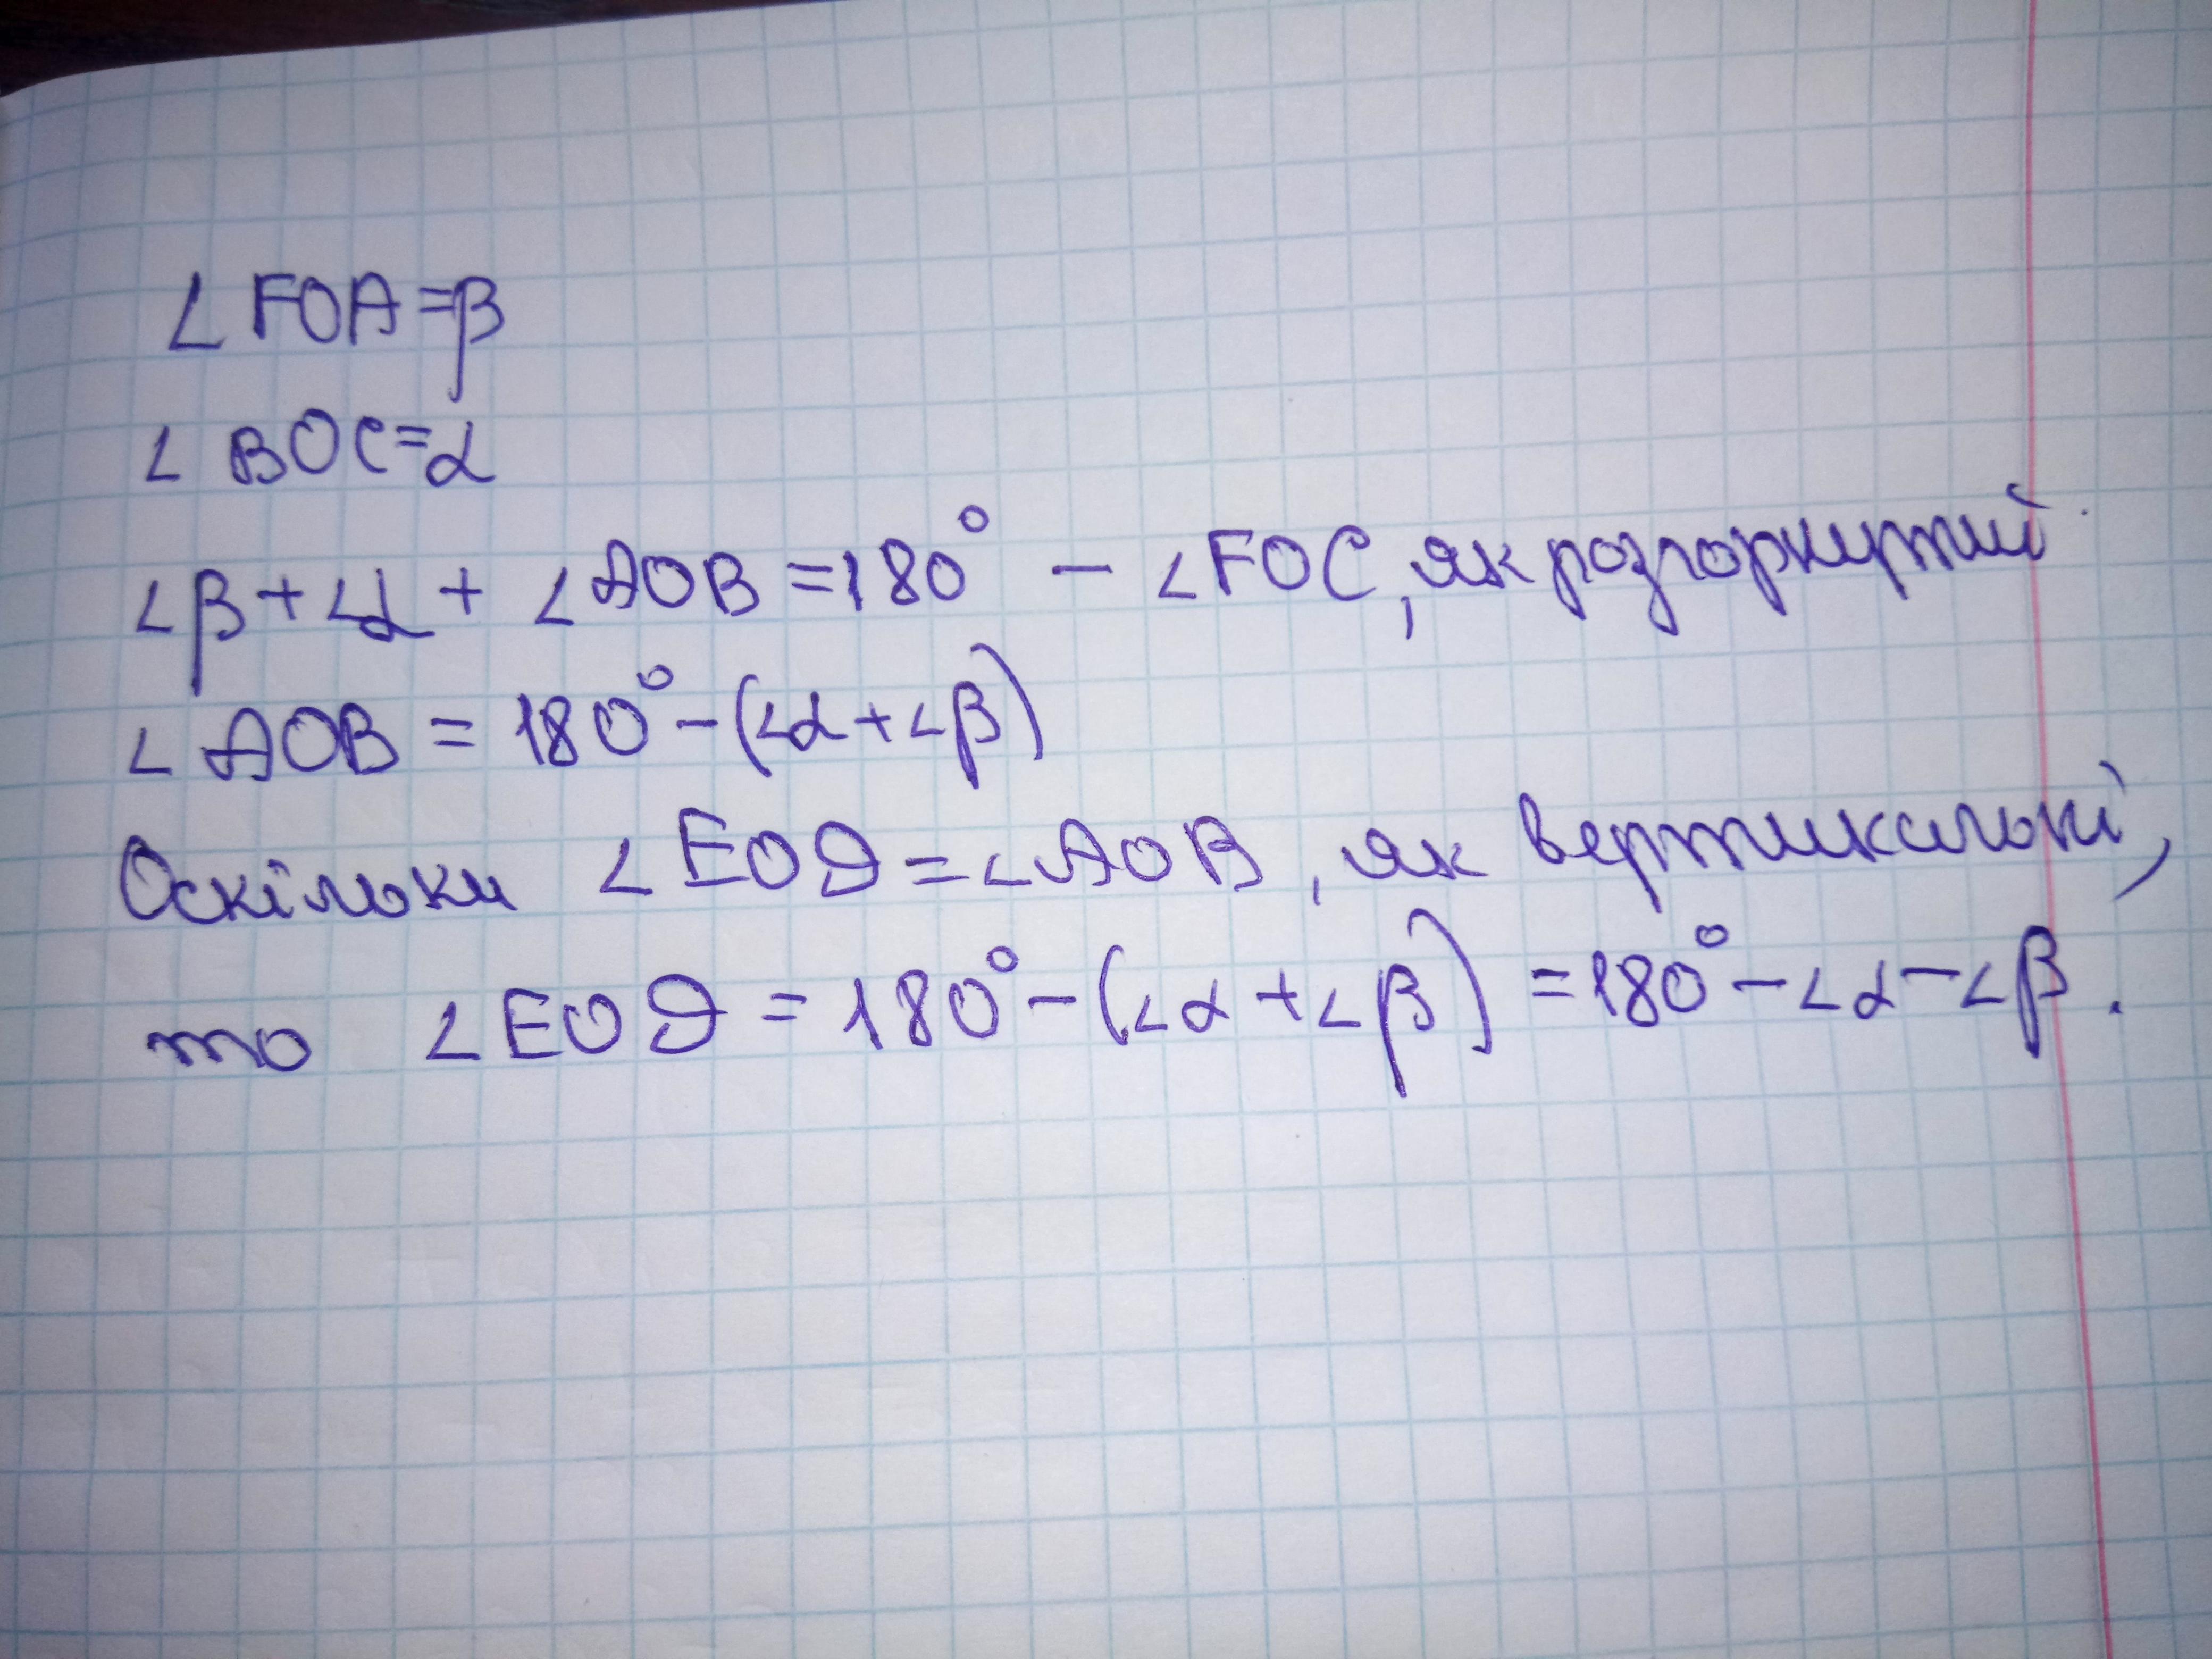 ∠FOA=β
∠BOC=α
∠β+∠α+∠AOB=180° - ∠FOC, як розгорнутий
∠AOB = 180°-(∠α+∠β)
Оскільки ∠EOD=∠AOB, як вертикальні,
то ∠EOD = 180°-(∠α+∠β) =180°-∠α-∠β.